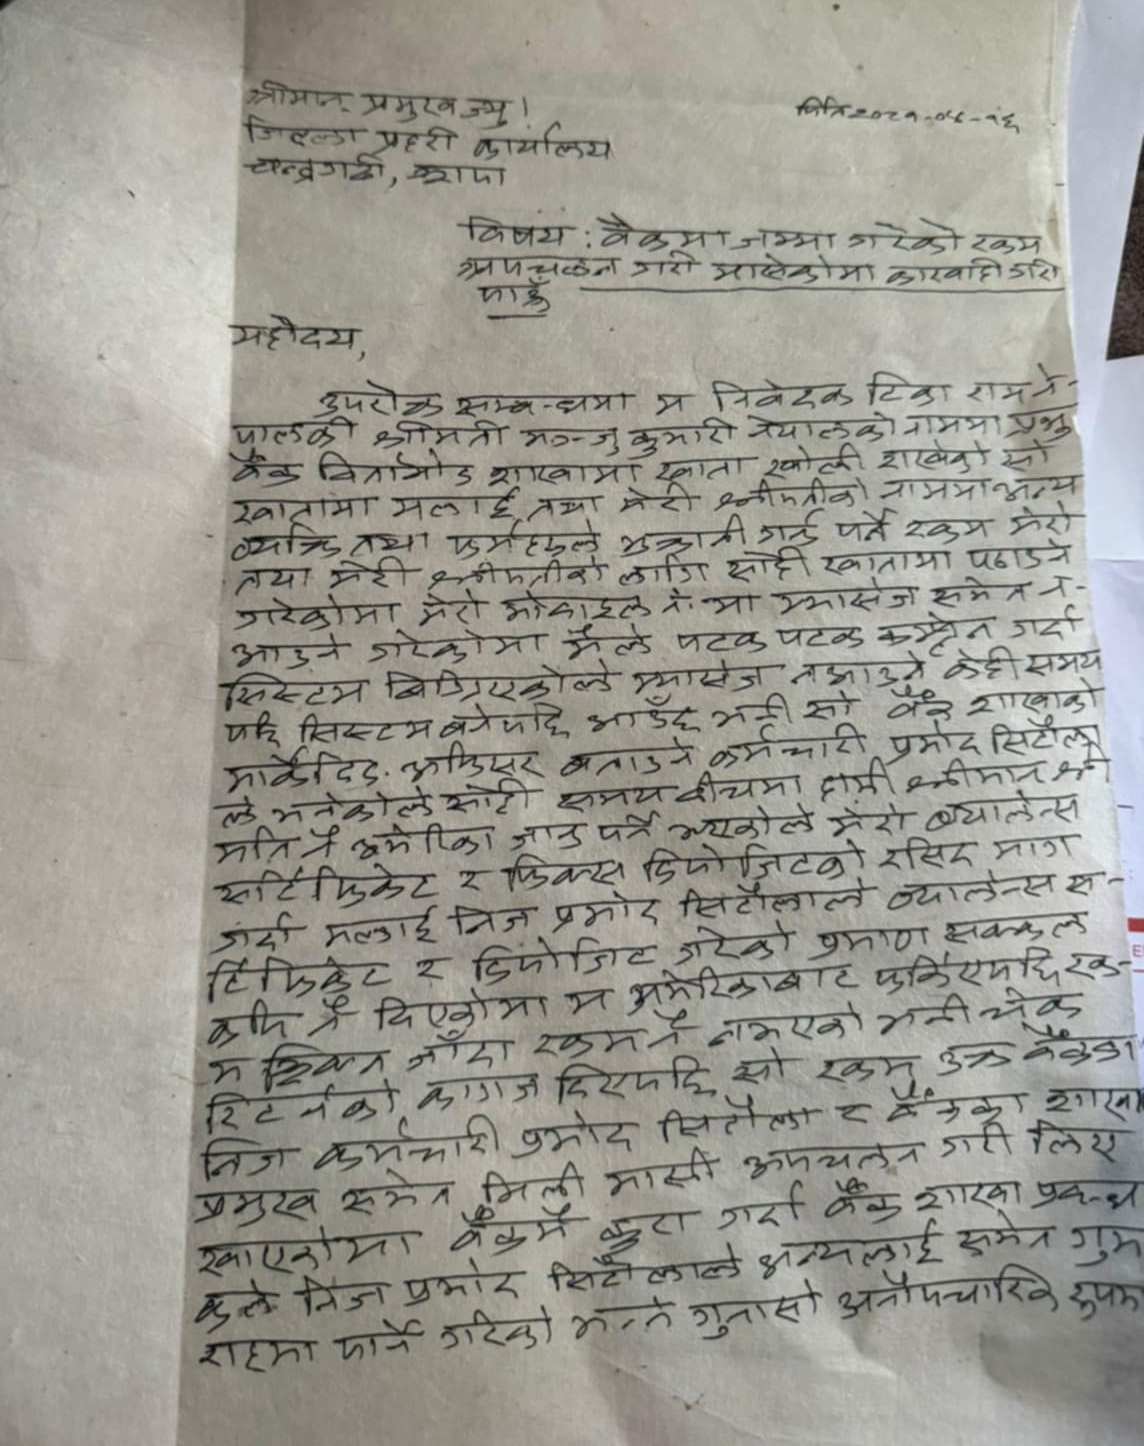 श्रीमान् प्रमुख ज्यु।
मिति २०८१-०५-१६
जिल्ला प्रहरी कार्यालय
चन्द्रगढी, झापा
विषय : बैंकमा जम्मा गरेको रकम
अपचलन गरी मासेकोमा कारवाही गरी
पाऊँ
महोदय,
उपरोक्त सम्बन्धमा म निवेदक टिका राम ने-
पालकी श्रीमती मञ्जु कुमारी नेपालको नाममा प्रभु
बैंक बिर्तामोड शाखामा खाता खोली राखेको सो
खातामा मलाई तथा मेरी श्रीमतीको नाममा अन्य
व्यक्ति तथा फर्महरुले भुक्तानी गर्नु पर्ने रकम मेरो
तथा मेरी श्रीमतीको लागि सोही खातामा पठाउने
गरेकोमा मेरो मोबाइल नं. मा म्यासेज समेत न-
आउने गरेकोमा मैले पटक पटक कम्प्लेन गर्दा
सिस्टम बिग्रिएकोले म्यासेज नआउने केही समय
पछि सिस्टम बनेपछि आउँछ भनी सो बैंक शाखाको
मार्केटिङ अफिसर बताउने कर्मचारी प्रमोद सिटौला
ले भनेकोले सोही समय बीचमा हामी श्रीमान श्री
मति नै अमेरिका जानु पर्ने भएकोले मेरो ब्यालेन्स
सर्टिफिकेट र फिक्स डिपोजिटको रसिद माग
गर्दा मलाई निज प्रमोद सिटौलाले ब्यालेन्स स-
र्टिफिकेट र डिपोजिट गरेको प्रमाण सक्कल
कपि नै दिएकोमा म अमेरिकाबाट फर्किएपछि रक-
म झिक्न जाँदा रकम नै नभएको भनी चेक
रिटर्नको कागज दिएपछि सो रकम उक्त बैंकका
निज कर्मचारी प्रमोद सिटौला र बैंकका शाखा
प्रमुख समेत मिली मासी अपचलन गरी लिए
खाएकोमा बैंकमै कुरा गर्दा बैंक शाखा प्रबन्ध
कले निज प्रमोद सिटौलाले अन्यलाई समेत गुम
राहमा पार्ने गरिको भन्ने गुनासो अनौपचारिक रुपमा